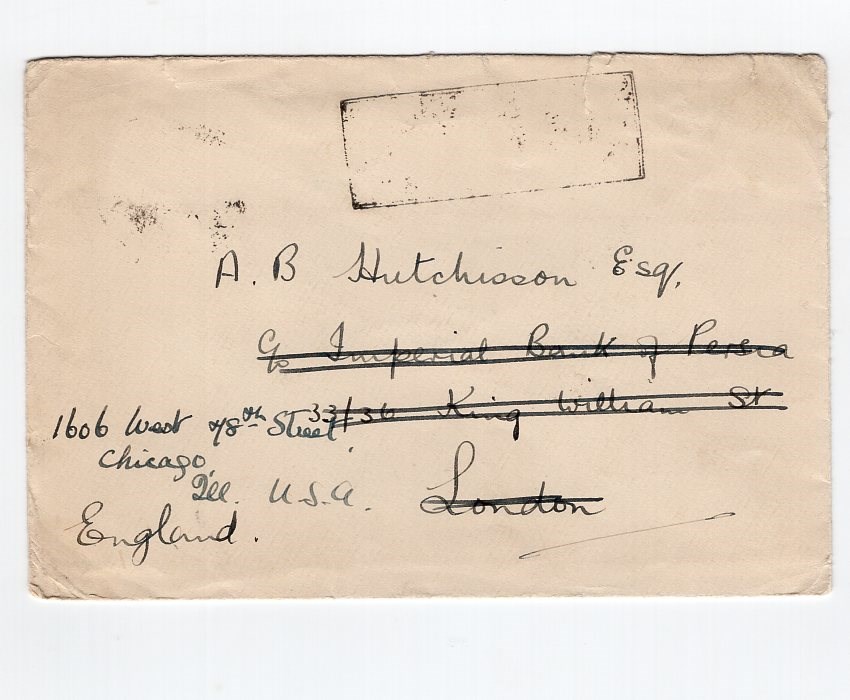 A. B Hutchisson Esq,
c/o Imperial Bank of Persia
33/36 King William St
London
England.
1606 West 78th Street
Chicago,
Ill. U.S.A.